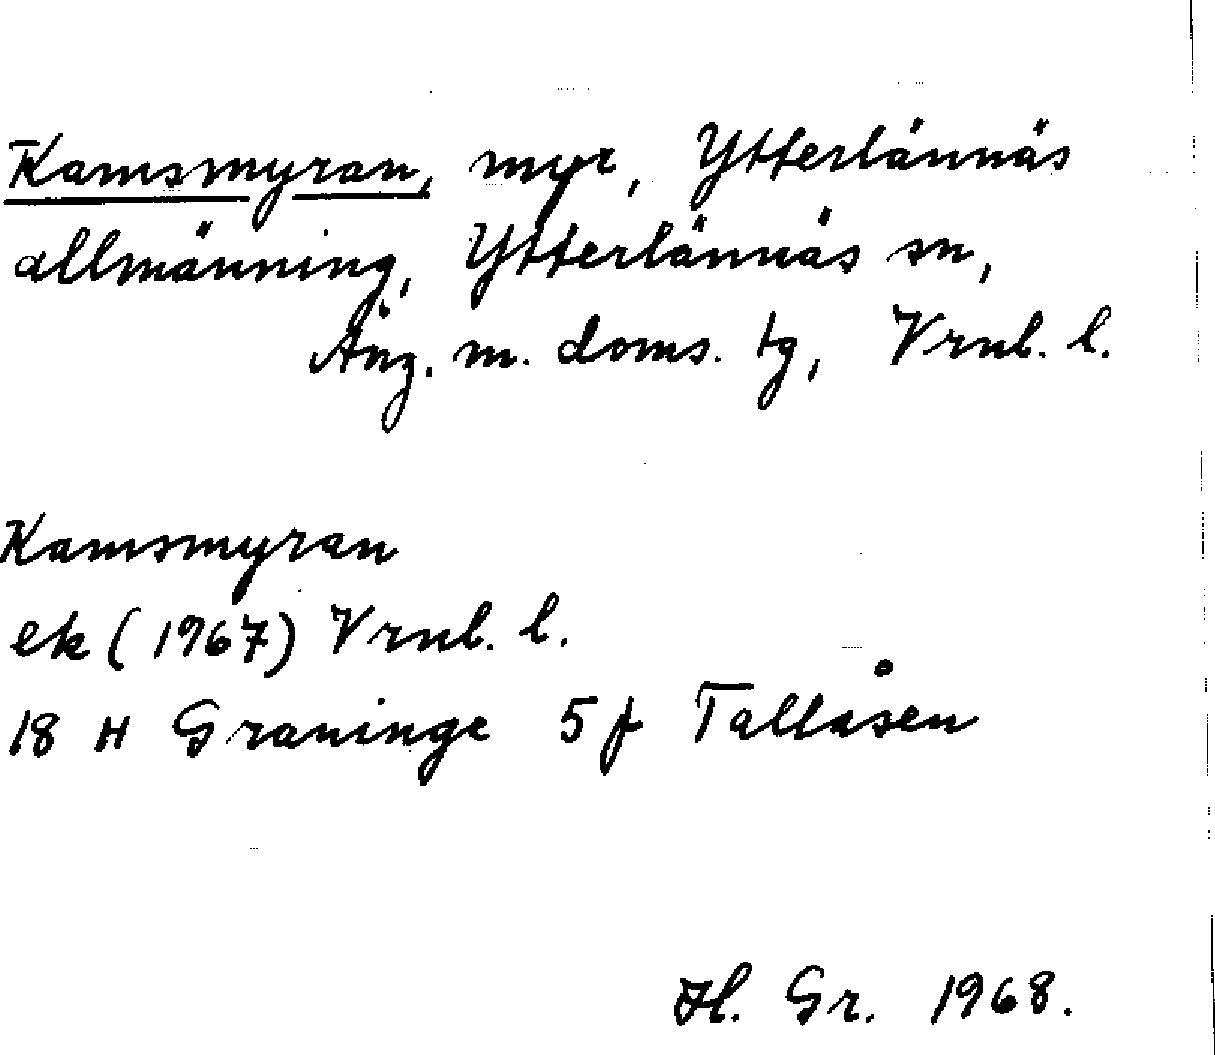 Kamsmyran, myr, Ytterlännäs
allmänning, Ytterlännäs sn,
Äng. m. doms. tg, Vrnl. l.
Kamsmyran
ek (1967) Vrnl. l.
18 H Graninge 5 f Tallåsen
Hl. Gr. 1968.